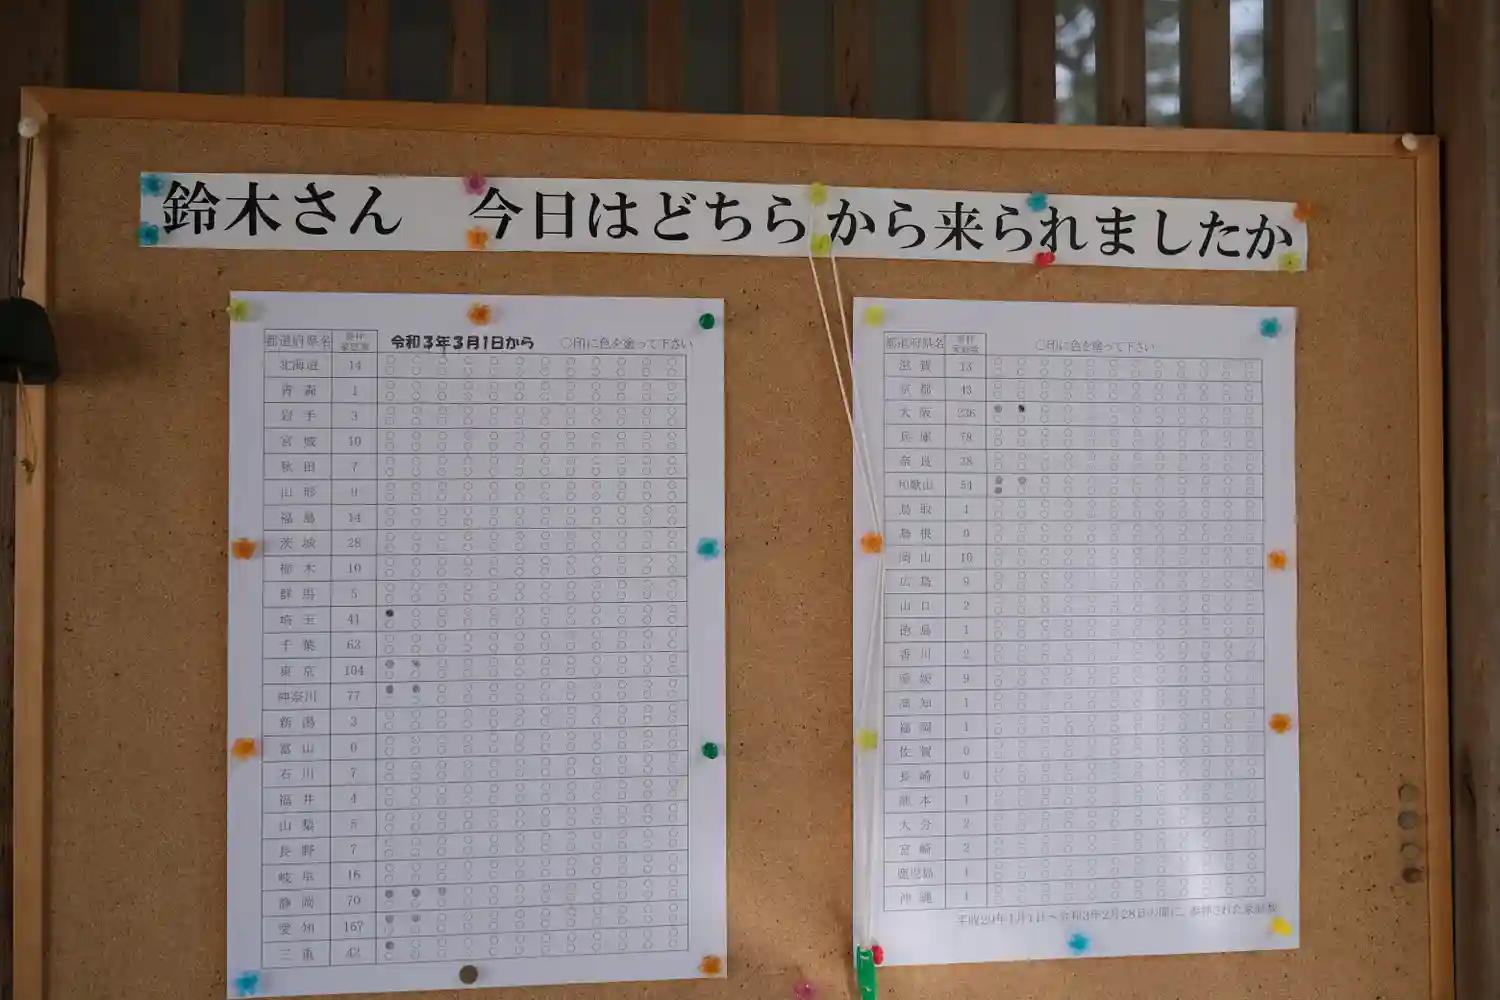 鈴木さん 今日はどちらから来られましたか
都道府県名 参拝家庭数 令和3年3月1日から ○印に色を塗って下さい
北海道 14
青森 1
岩手 3
宮城 10
秋田 7
山形 9
福島 14
茨城 28
栃木 10
群馬 5
埼玉 41
千葉 63
東京 104
神奈川 77
新潟 3
富山 0
石川 7
福井 4
山梨 5
長野 7
岐阜 16
静岡 70
愛知 167
三重 42
都道府県名 参拝家庭数 ○印に色を塗って下さい
滋賀 13
京都 43
大阪 236
兵庫 78
奈良 38
和歌山 54
鳥取 1
島根 0
岡山 10
広島 9
山口 2
徳島 1
香川 2
愛媛 9
高知 1
福岡 1
佐賀 0
長崎 0
熊本 1
大分 2
宮崎 2
鹿児島 1
沖縄 1
平成29年1月1日～令和3年2月28日の間に、参拝された家庭数